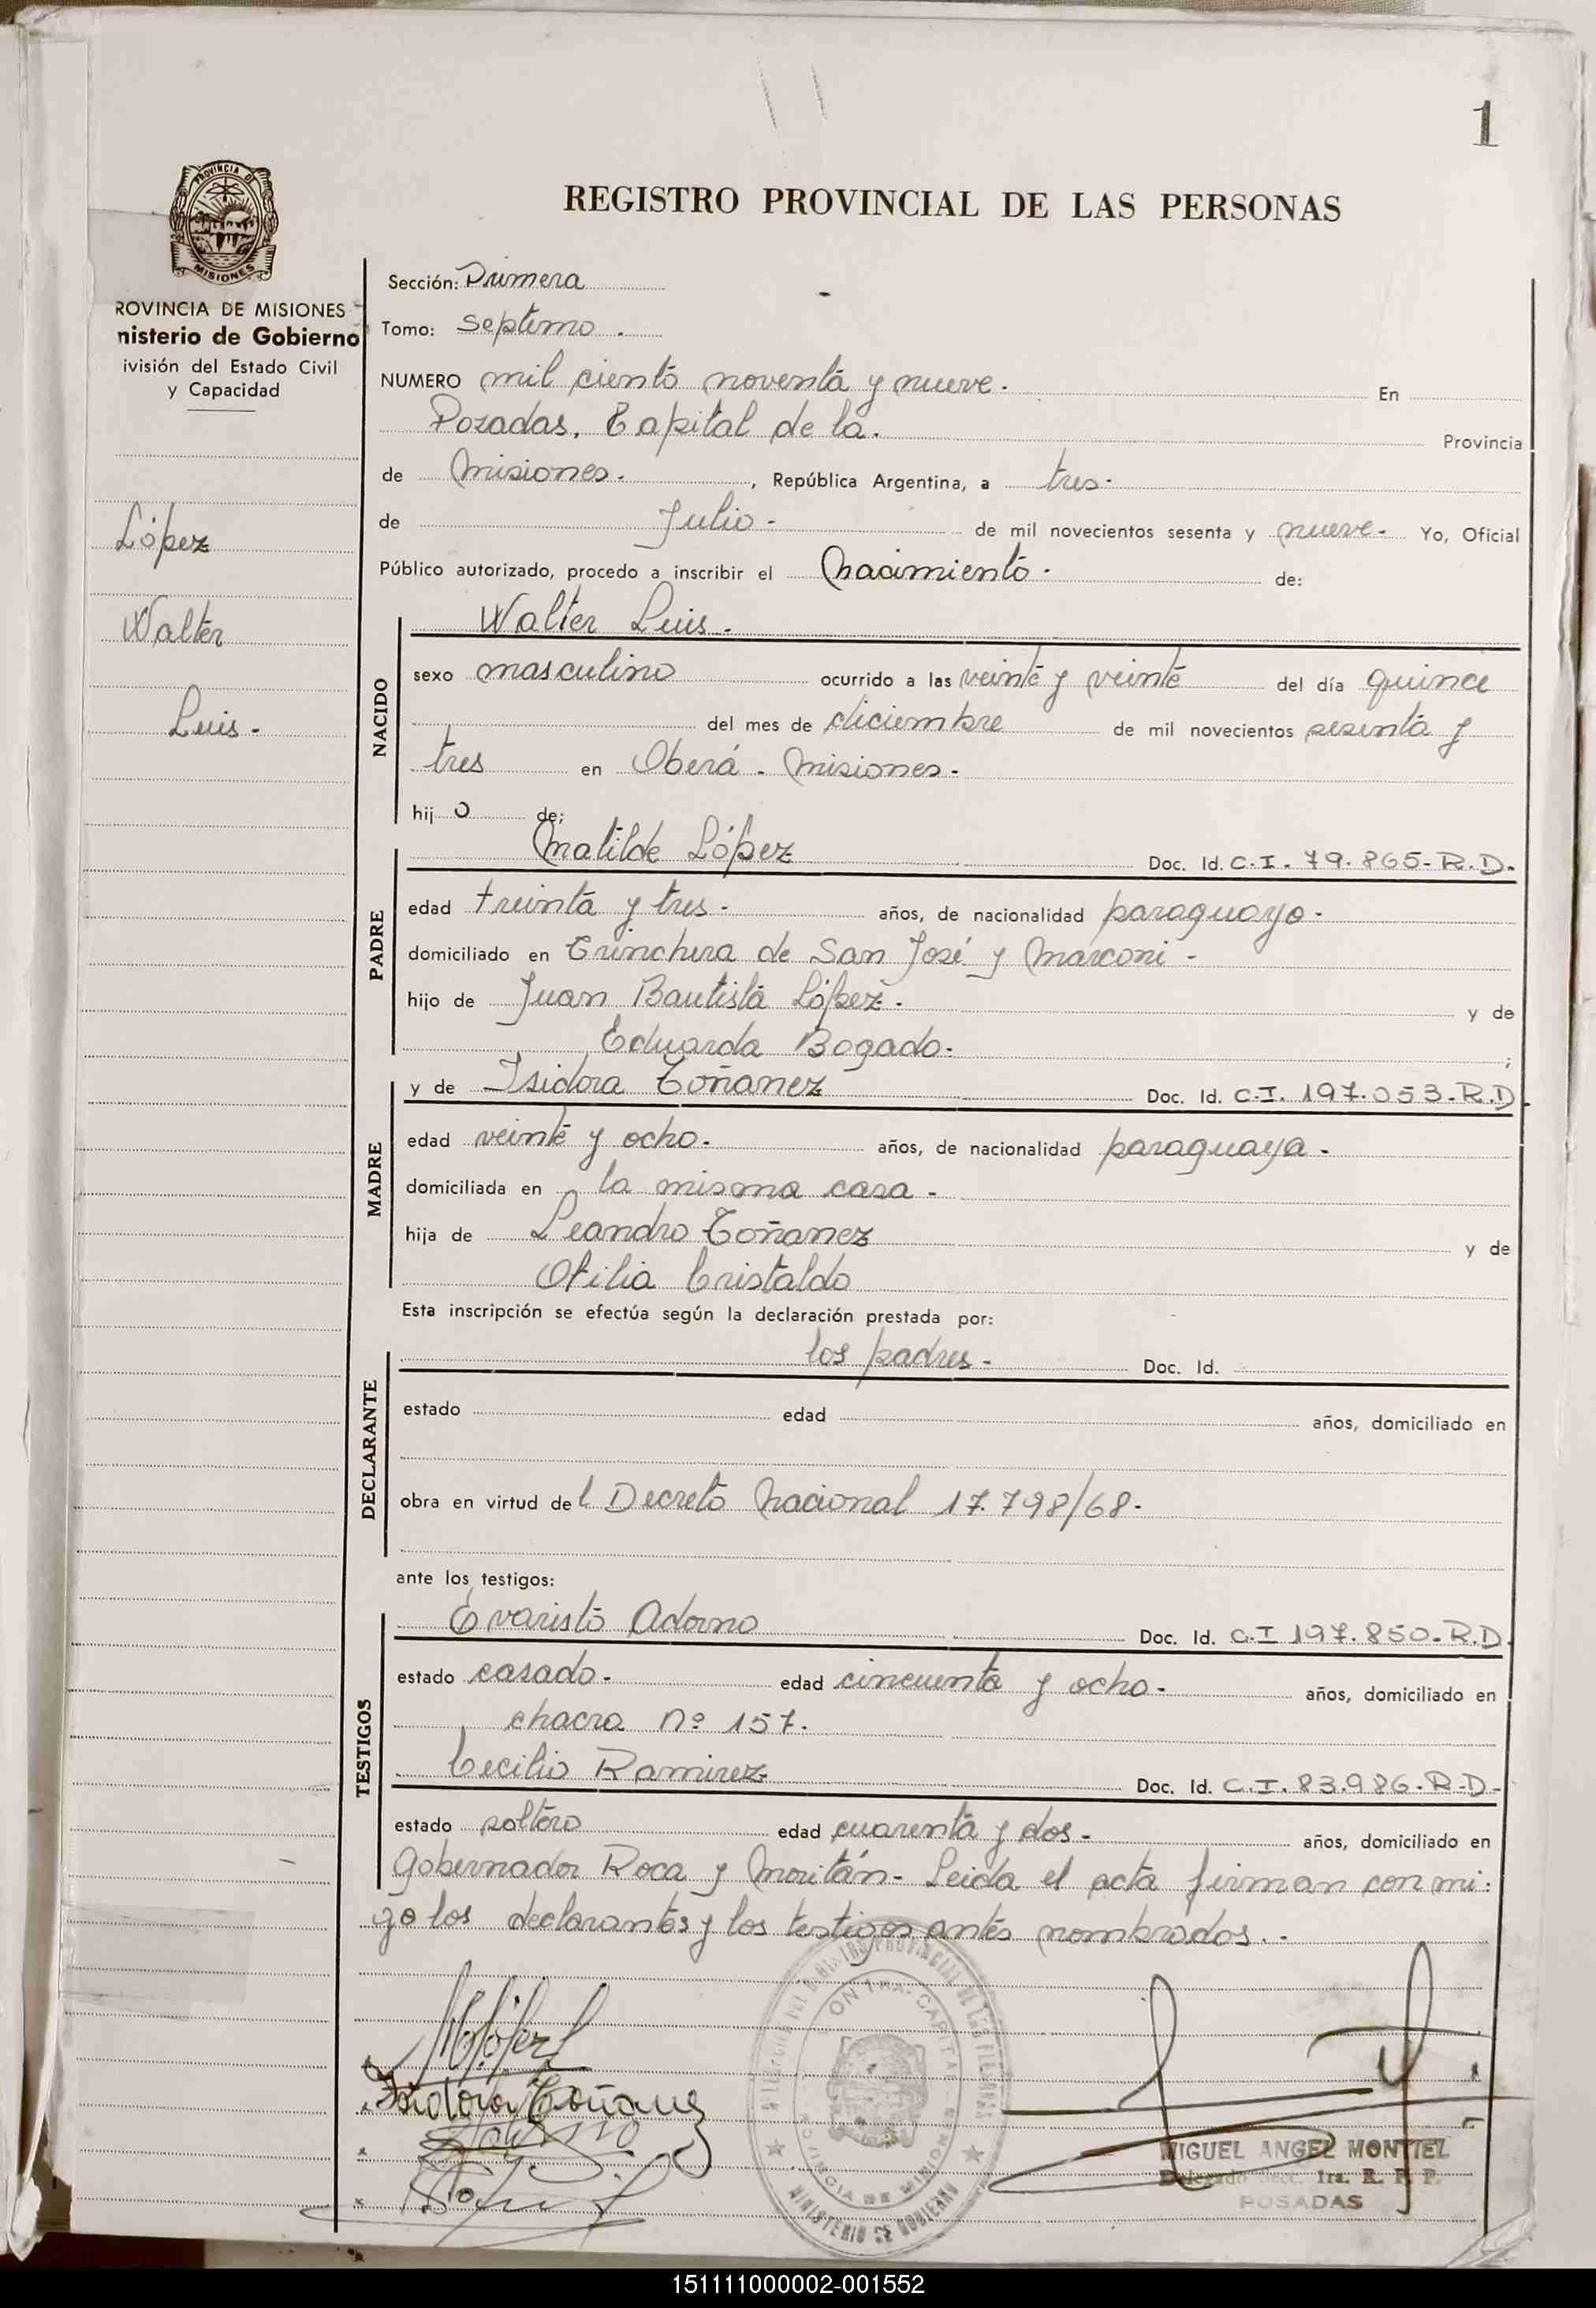 1
PROVINCIA DE
MISIONES
REGISTRO PROVINCIAL DE LAS PERSONAS
ROVINCIA DE MISIONES
nisterio de Gobierno
ivisión del Estado Civil
y Capacidad
López
Walter
Luis -
Sección: Primera
Tomo: Septimo .
NUMERO mil ciento noventa y nueve - En
Posadas, Capital de la. Provincia
de Misiones. , República Argentina, a tres -
de Julio - de mil novecientos sesenta y nueve - Yo, Oficial
Público autorizado, procedo a inscribir el Nacimiento - de:
NACIDO
Walter Luis -
sexo masculino ocurrido a las veinte y veinte del día quince
del mes de diciembre de mil novecientos sesenta y
tres en Oberá - Misiones -
hij o de:
PADRE
Matilde López Doc. Id. C.I. 79.865-R.D-
edad treinta y tres - años, de nacionalidad paraguayo -
domiciliado en Trinchera de San José y Marconi -
hijo de Juan Bautista López - y de
Eduarda Bogado - ;
MADRE
y de Isidora Toñanez Doc. Id. C.I. 197.053-R.D.
edad veinte y ocho - años, de nacionalidad paraguaya -
domiciliada en la misma casa -
hija de Leandro Toñanez y de
Otilia Cristaldo
Esta inscripción se efectúa según la declaración prestada por:
DECLARANTE
los padres - Doc. Id.
estado edad años, domiciliado en
obra en virtud del Decreto Nacional 17.798/68-
ante los testigos:
TESTIGOS
Evaristo Adorno Doc. Id. C.I 197.850-R.D.
estado casado - edad cincuenta y ocho - años, domiciliado en
chacra nº 157.
Cecilio Ramirez Doc. Id. C.I. 83.986-R-D-
estado soltero edad cuarenta y dos - años, domiciliado en
Gobernador Roca y Moritán - Leida el acta firman conmi-
go los declarantes y los testigos antes nombrados. -
Isidora Toñanez
MINISTERIO DE GOBIERNO
MIGUEL ANGEL MONTIEL
Delegado Secc. 1ra. R. P. P.
POSADAS
151111000002-001552